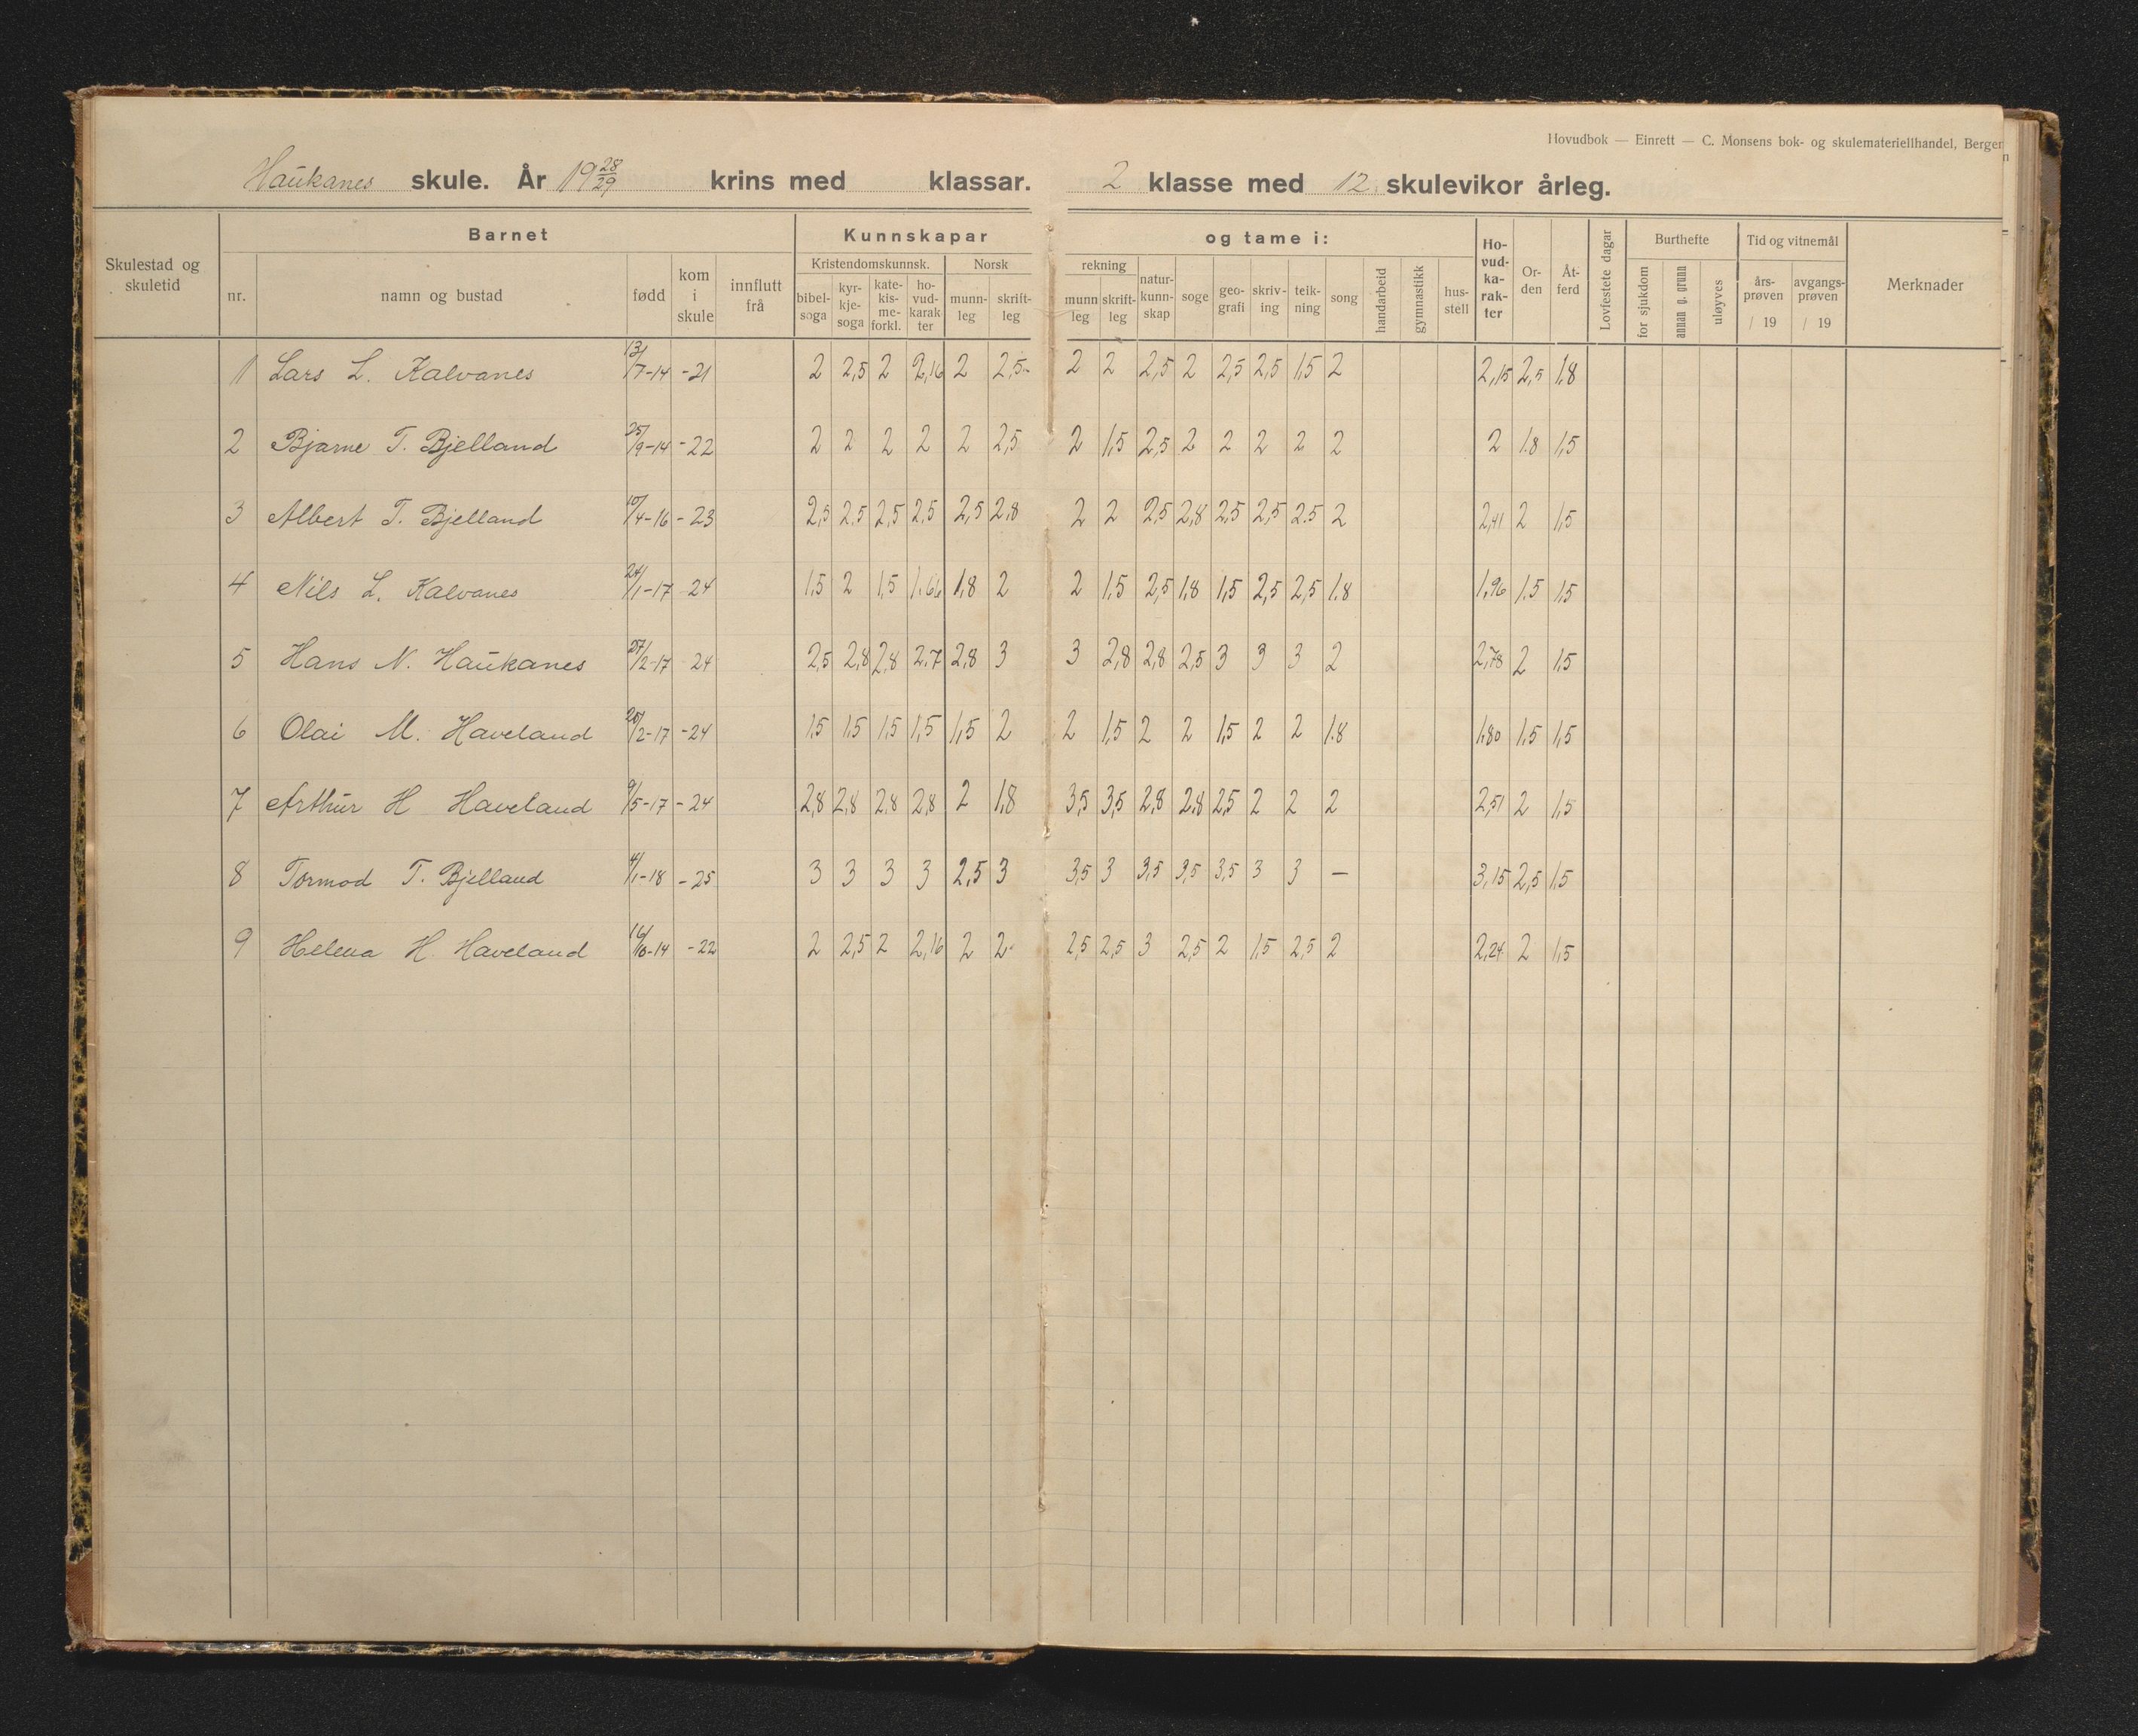 Hovudbok — Einrett — C. Monsens bok- og skulemateriellhandel, Bergen
Haukanes skule. År 19 28/29 krins med klassar. 2 klasse med 12 skulevikor årleg.
Skulestad og skuletid
Barnet
nr. namn og bustad fødd kom i skule innflutt frå
Kunnskapar og tame i:
Kristendomskunnsk. Norsk rekning
bibel-soga kyr-kje-soga kate-kis-me-forkl. ho-vud-karak-ter munn-leg skrift-leg munn leg skrift-leg natur-kunn-skap soge geo-grafi skriv-ing teik-ning song handarbeid gymnastikk hus-stell
Ho-vud-ka-rak-ter Or-den Åt-ferd Lovfestete dagar
Burthefte
for sjukdom annan g. grunn uløyves
Tid og vitnemål
års-prøven / 19 avgangs-prøven / 19
Merknader
1 Lars L. Kalvanes 13/7-14 -21 2 2,5 2 2,16 2 2,5 2 2 2,5 2 2,5 2,5 1,5 2 2,15 2,5 1.8
2 Bjarne T. Bjelland 25/9-14 -22 2 2 2 2 2 2,5 2 1,5 2,5 2 2 2 2 2 2 1.8 1,5
3 Albert T. Bjelland 10/4-16 -23 2,5 2.5 2,5 2,5 2,5 2.8 2 2 2,5 2,8 2,5 2,5 2.5 2 2,41 2 1,5
4 Nils L. Kalvanes 24/1-17 24 1,5 2 1,5 1.66 1,8 2 2 1.5 2,5 1,8 1,5 2,5 2,5 1.8 1,96 1.5 1,5
5 Hans N. Haukanes 27/2-17 24 2,5 2,8 2,8 2.7 2,8 3 3 2,8 2,8 2,5 3 3 3 2 2,78 2 1,5
6 Olai M. Haveland 20/2-17 -24 1,5 1,5 1,5 1,5 1,5 2 2 1,5 2 2 1,5 2 2 1.8 1.80 1.5 1,5
7 Arthur H Haveland 9/5-17 -24 2,8 2,8 2.8 2,8 2 1,8 3,5 3,5 2,8 2.8 2,5 2 2 2 2,51 2 1,5
8 Tormod T. Bjelland 4/1-18 -25 3 3 3 3 2,5 3 3,5 3 3,5 3,5 3,5 3 3 — 3,15 2,5 1,5
9 Helena H. Haveland 16/10-14 -22 2 2,5 2 2,16 2 2 2,5 2,5 3 2,5 2 1,5 2,5 2 2,24 2 1,5